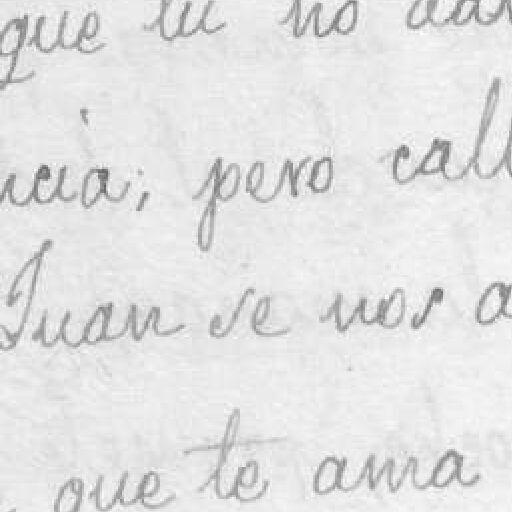 que tu no
ncia; pero call
Juan se nos a
que te ama